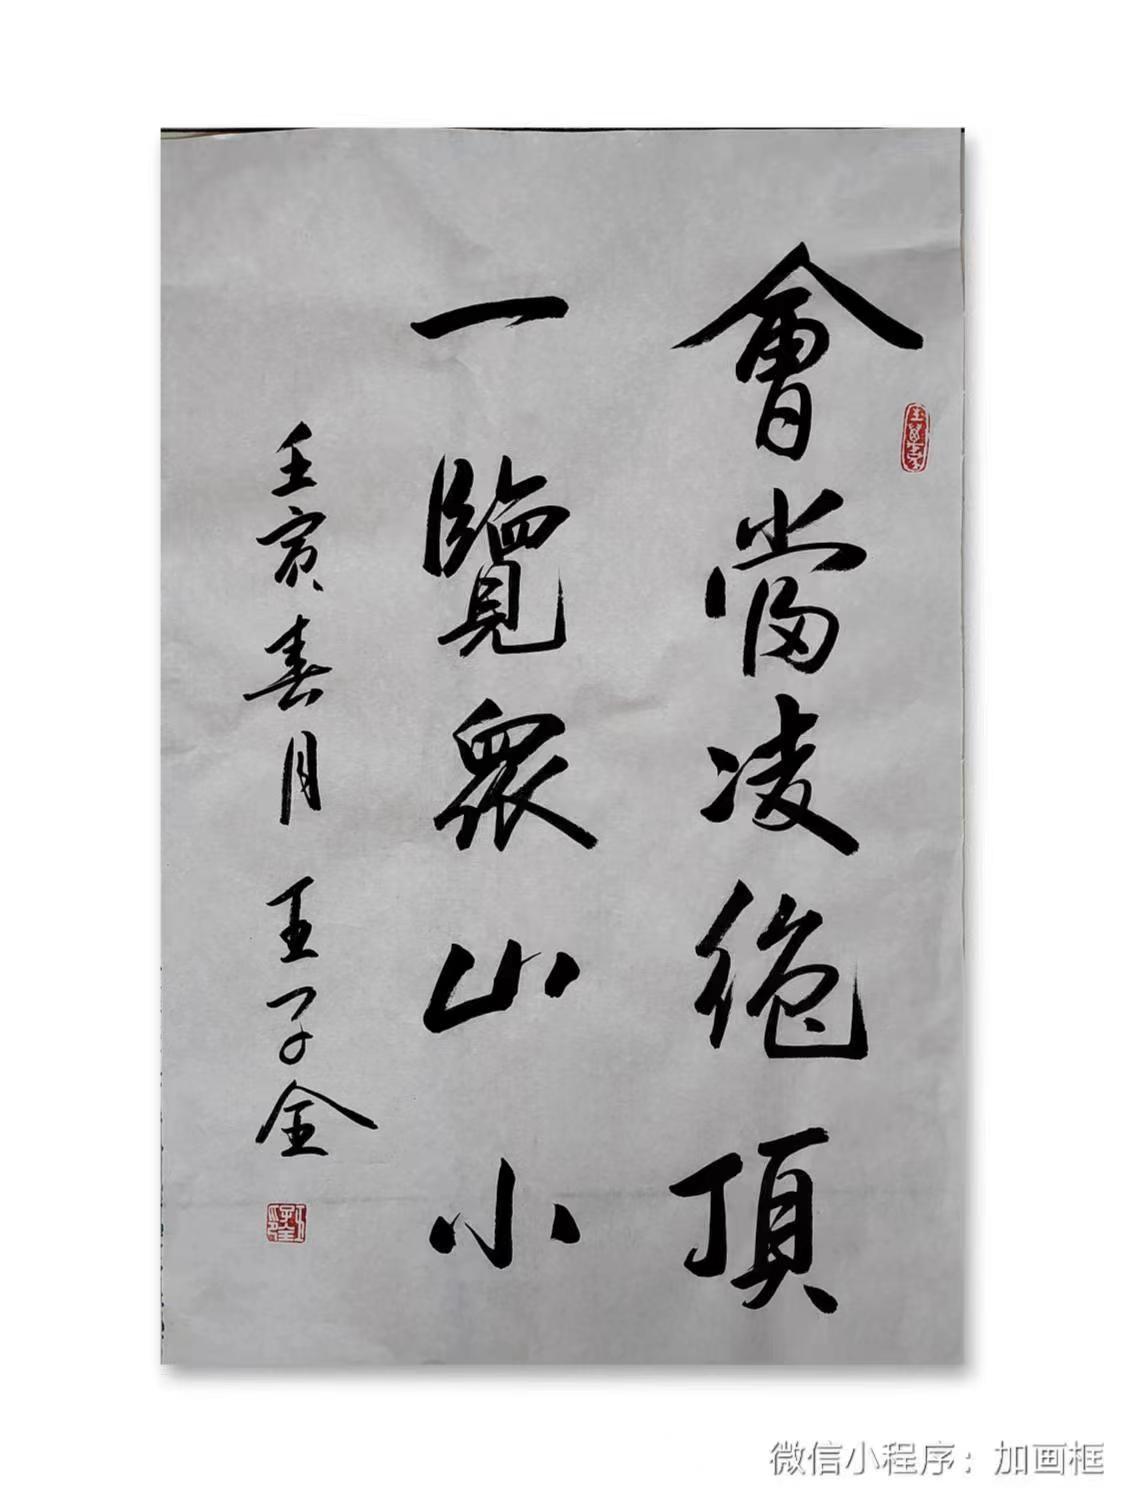 會當凌絶頂
一覽眾山小
壬寅春月 王子全
微信小程序：加画框